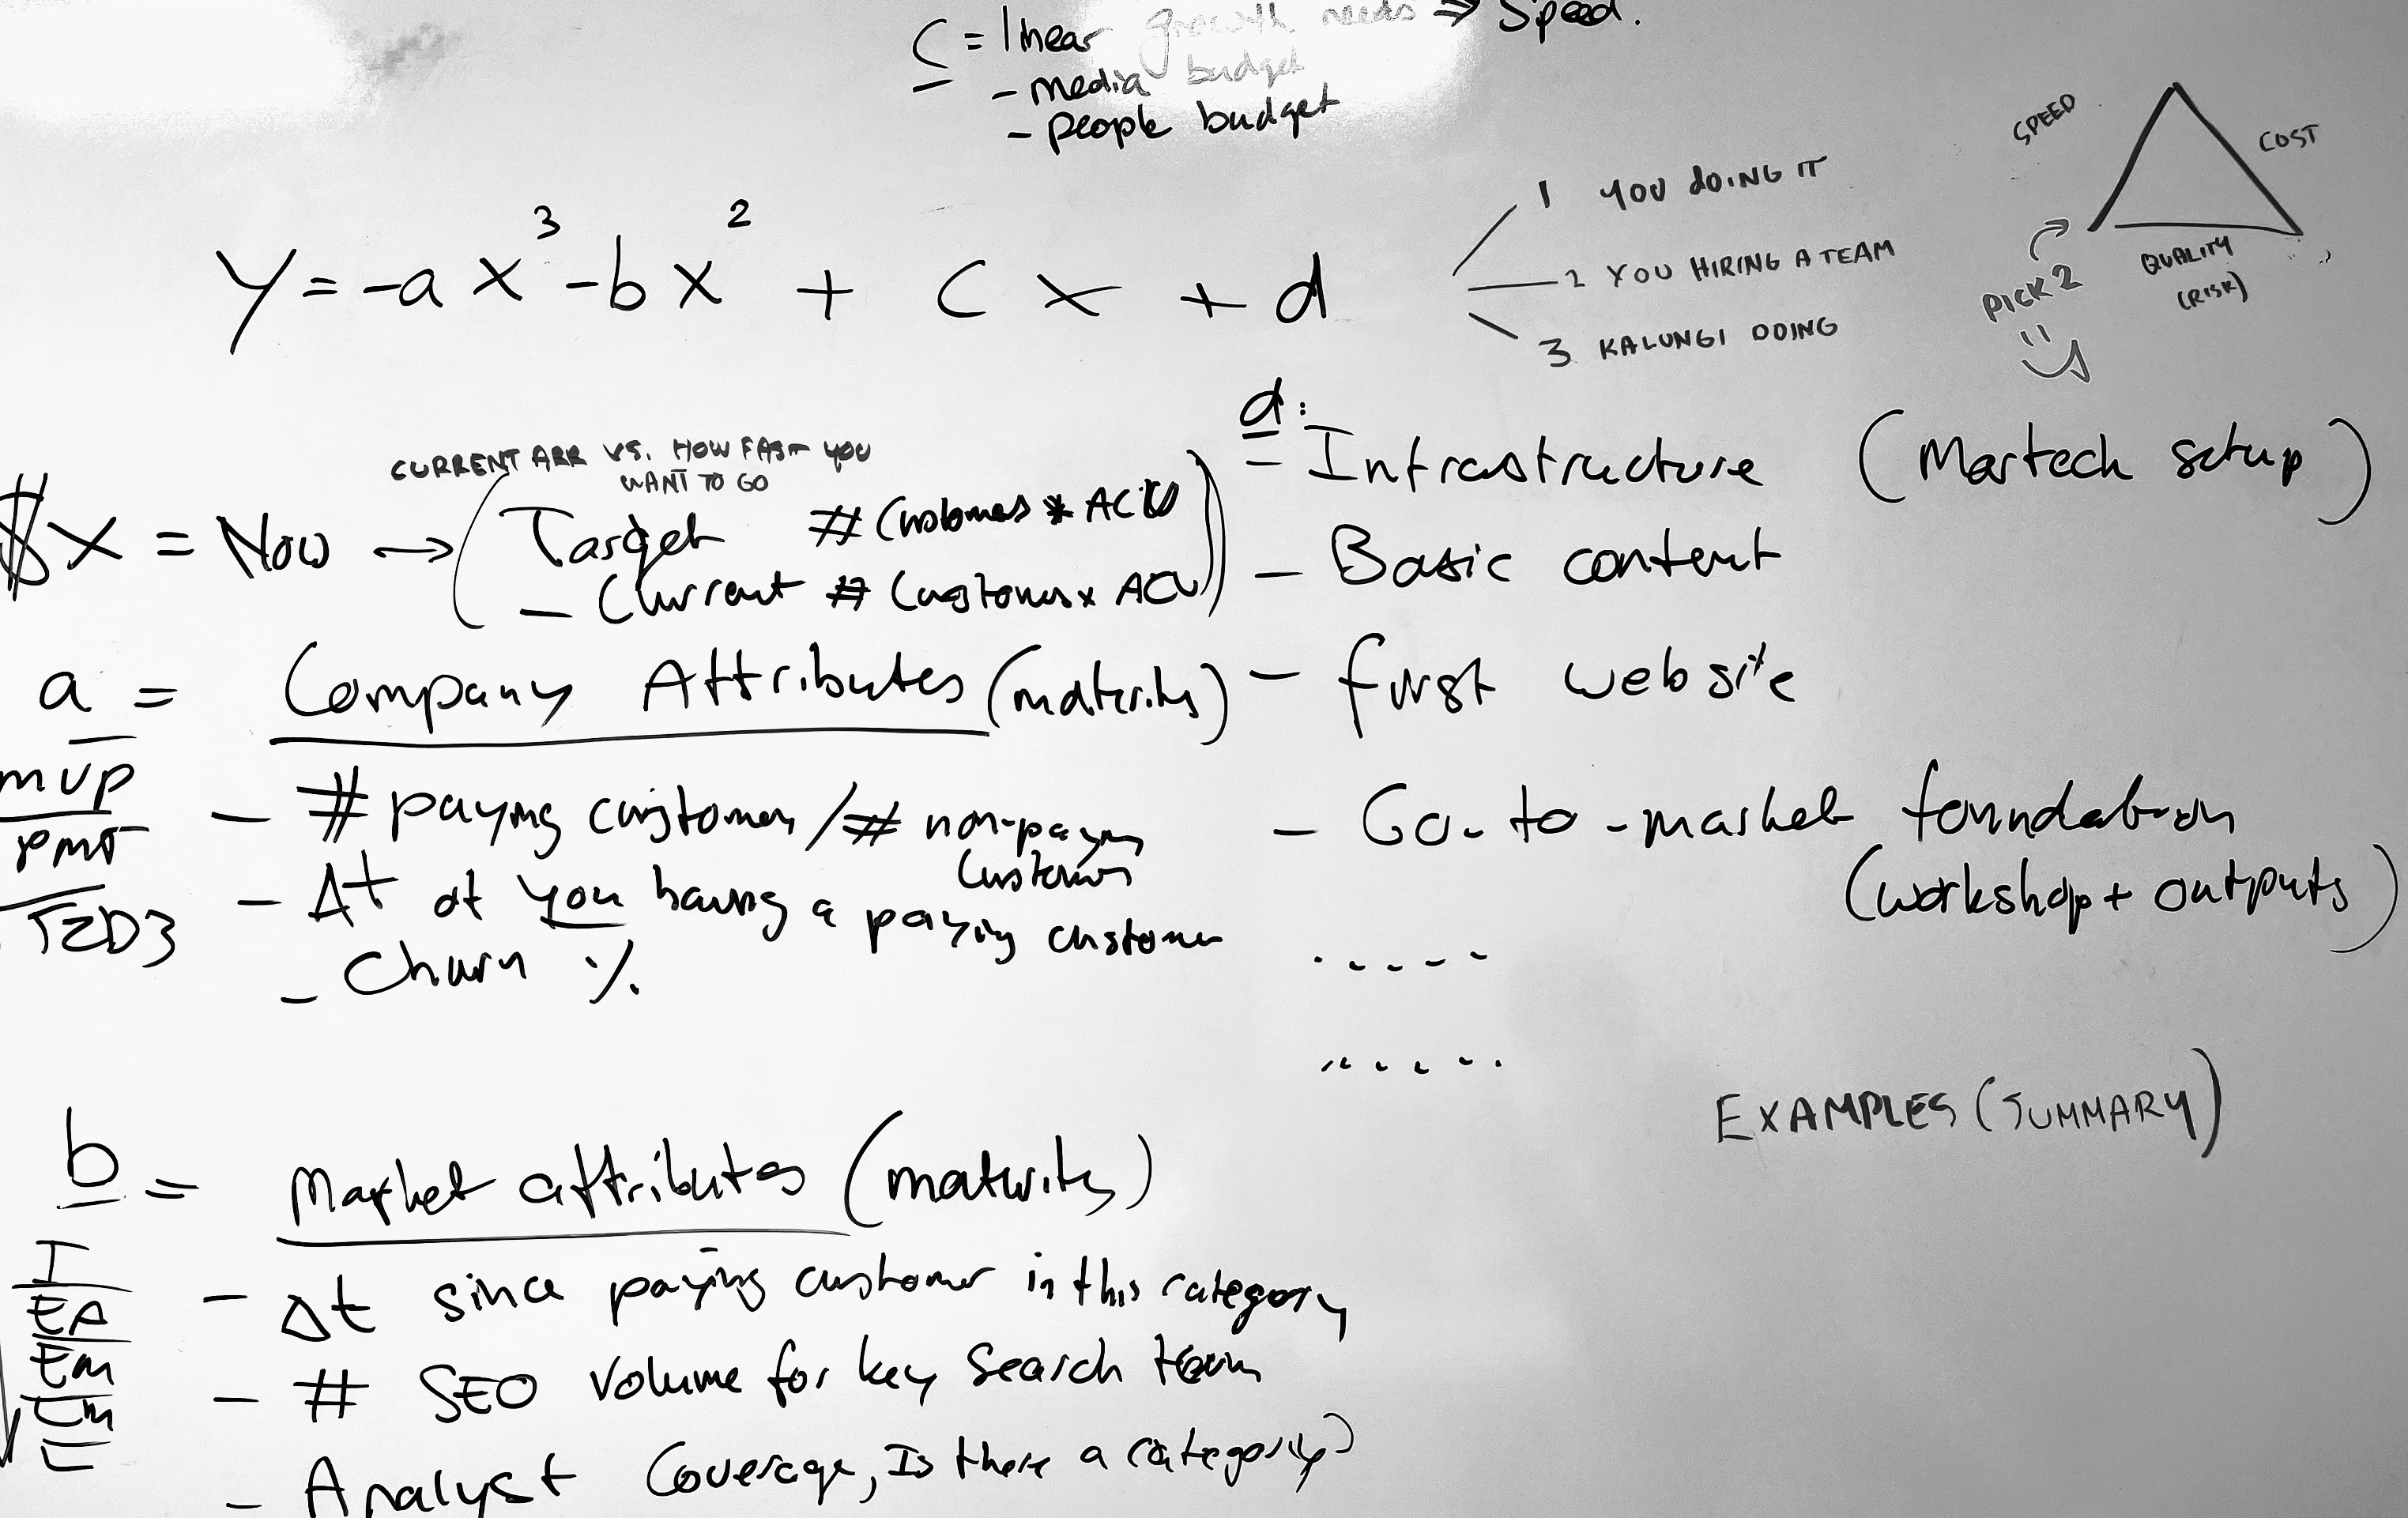 C = linear growth needs ⇒ Speed.
- media budget
- people budget
SPEED
COST
QUALITY
(RISK)
PICK 2
y = -ax³ - bx² + cx + d
1 YOU DOING IT
2 YOU HIRING A TEAM
3 KALUNGI DOING
CURRENT ARR VS. HOW FAST YOU
WANT TO GO
$x = Now → (Target # Customers * ACV
- Current # Customers x ACV)
a = Company Attributes (maturity)
MVP
PMF
T2D3
- # paying customers / # non-paying
customers
- Δt of you having a paying customer
- Churn %
d:
- Infrastructure (Martech setup)
- Basic content
- first website
- Go-to-market foundation
(workshop + outputs)
.....
.....
EXAMPLES (SUMMARY)
b = Market attributes (maturity)
I
EA
EM
LM
L
- Δt since paying customer in this category
- # SEO volume for key search term
- Analyst Coverage, Is there a category?